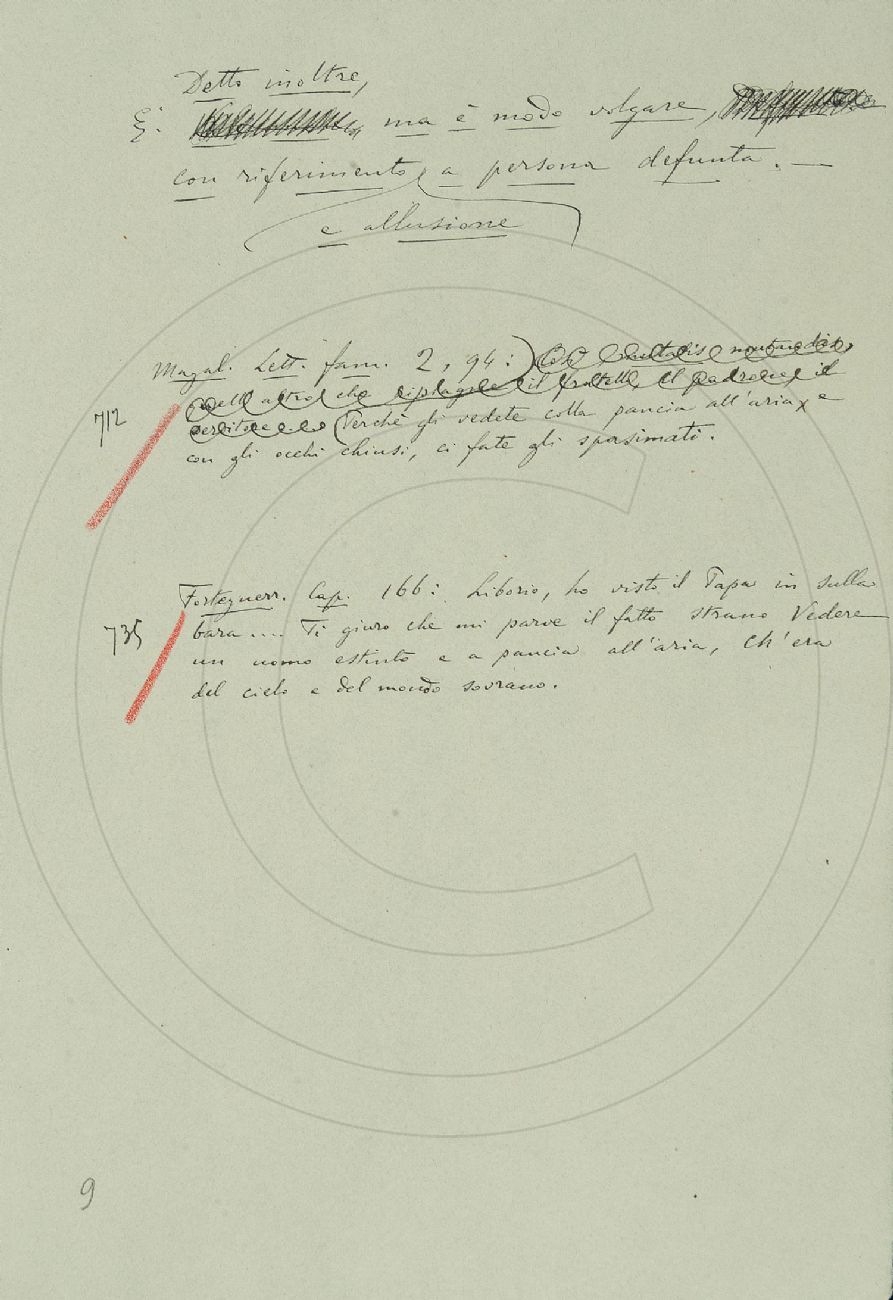 Detto inoltre,
ξ. ma è modo volgare,
con riferimento a persona defunta. —
e allusione
Magal. Lett. fam. 2, 94:) Così mutatis mutandis,
quell'altro che il fratello il padrone, il
712 Perchè gli vedete colla pancia all'aria, e
con gli occhi chiusi, ci fate gli spasimati.
Forteguerr. Cap. 166: Liborio, ho visto il Papa in sulla
735 bara .... Ti giuro che mi parve il fatto strano Vedere
un uomo estinto e a pancia all'aria, Ch'era
del cielo e del mondo sovrano.
9